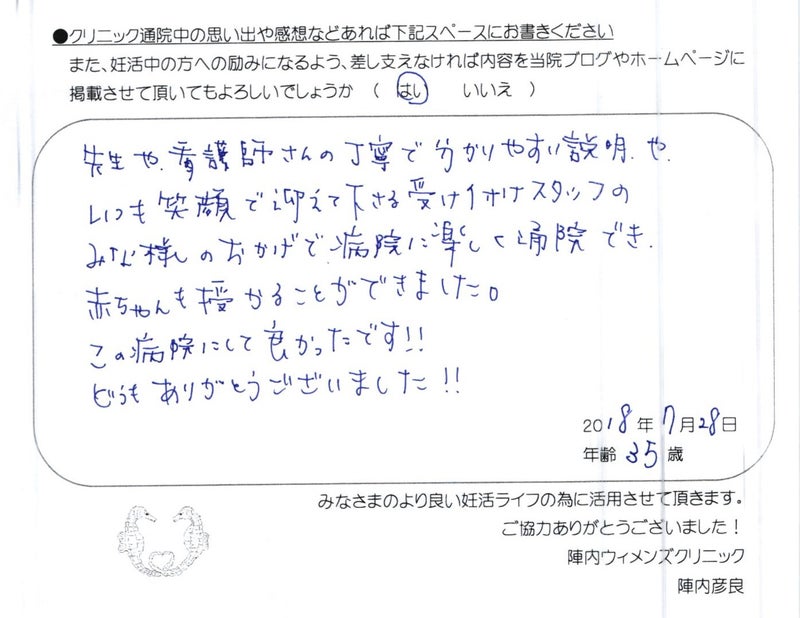 ●クリニック通院中の思い出や感想などあれば下記スペースにお書きください
また、妊活中の方への励みになるよう、差し支えなければ内容を当院ブログやホームページに
掲載させて頂いてもよろしいでしょうか （ はい　いいえ ）
先生や、看護師さんの丁寧で分かりやすい説明、や、
いつも笑顔で迎えて下さる受け付けスタッフの
みな様のおかげで、病院に楽しく通院でき、
赤ちゃんも授かることができました。
この病院にして良かったです!!
どうもありがとうございました!!
2018年7月28日
年齢 35 歳
みなさまのより良い妊活ライフの為に活用させて頂きます。
ご協力ありがとうございました！
陣内ウィメンズクリニック
陣内彦良